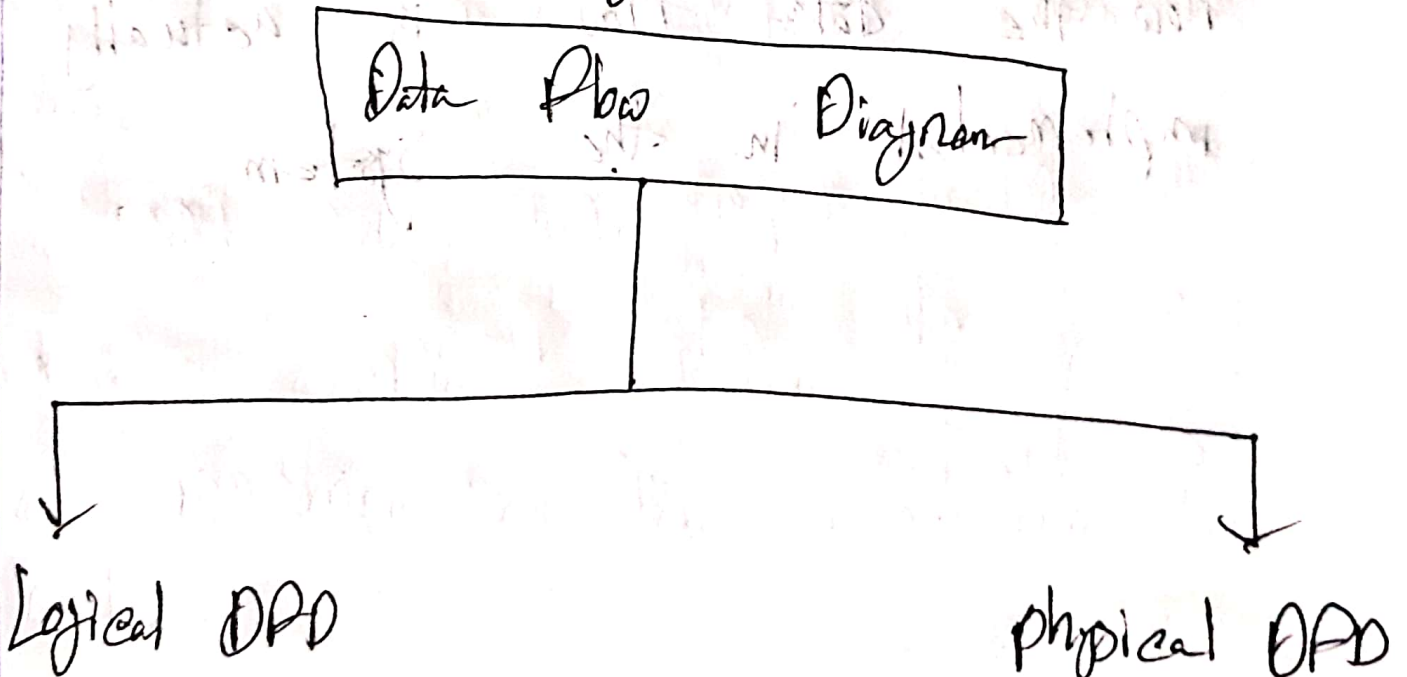 Data Flow Diagram
Logical DFD
physical DFD